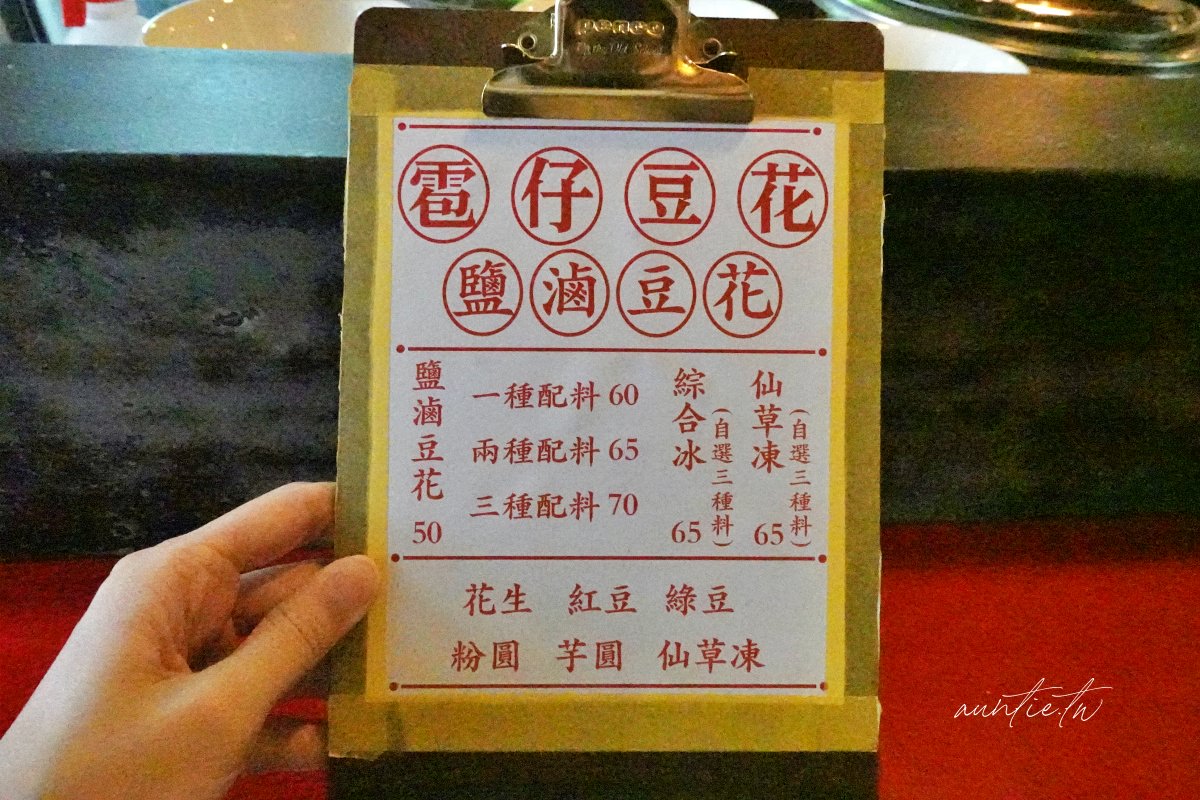 penco
雹仔豆花
鹽滷豆花
鹽滷豆花 50
一種配料 60
兩種配料 65
三種配料 70
綜合冰(自選三種料) 65
仙草凍(自選三種料) 65
花生 紅豆 綠豆
粉圓 芋圓 仙草凍
auntie.tw